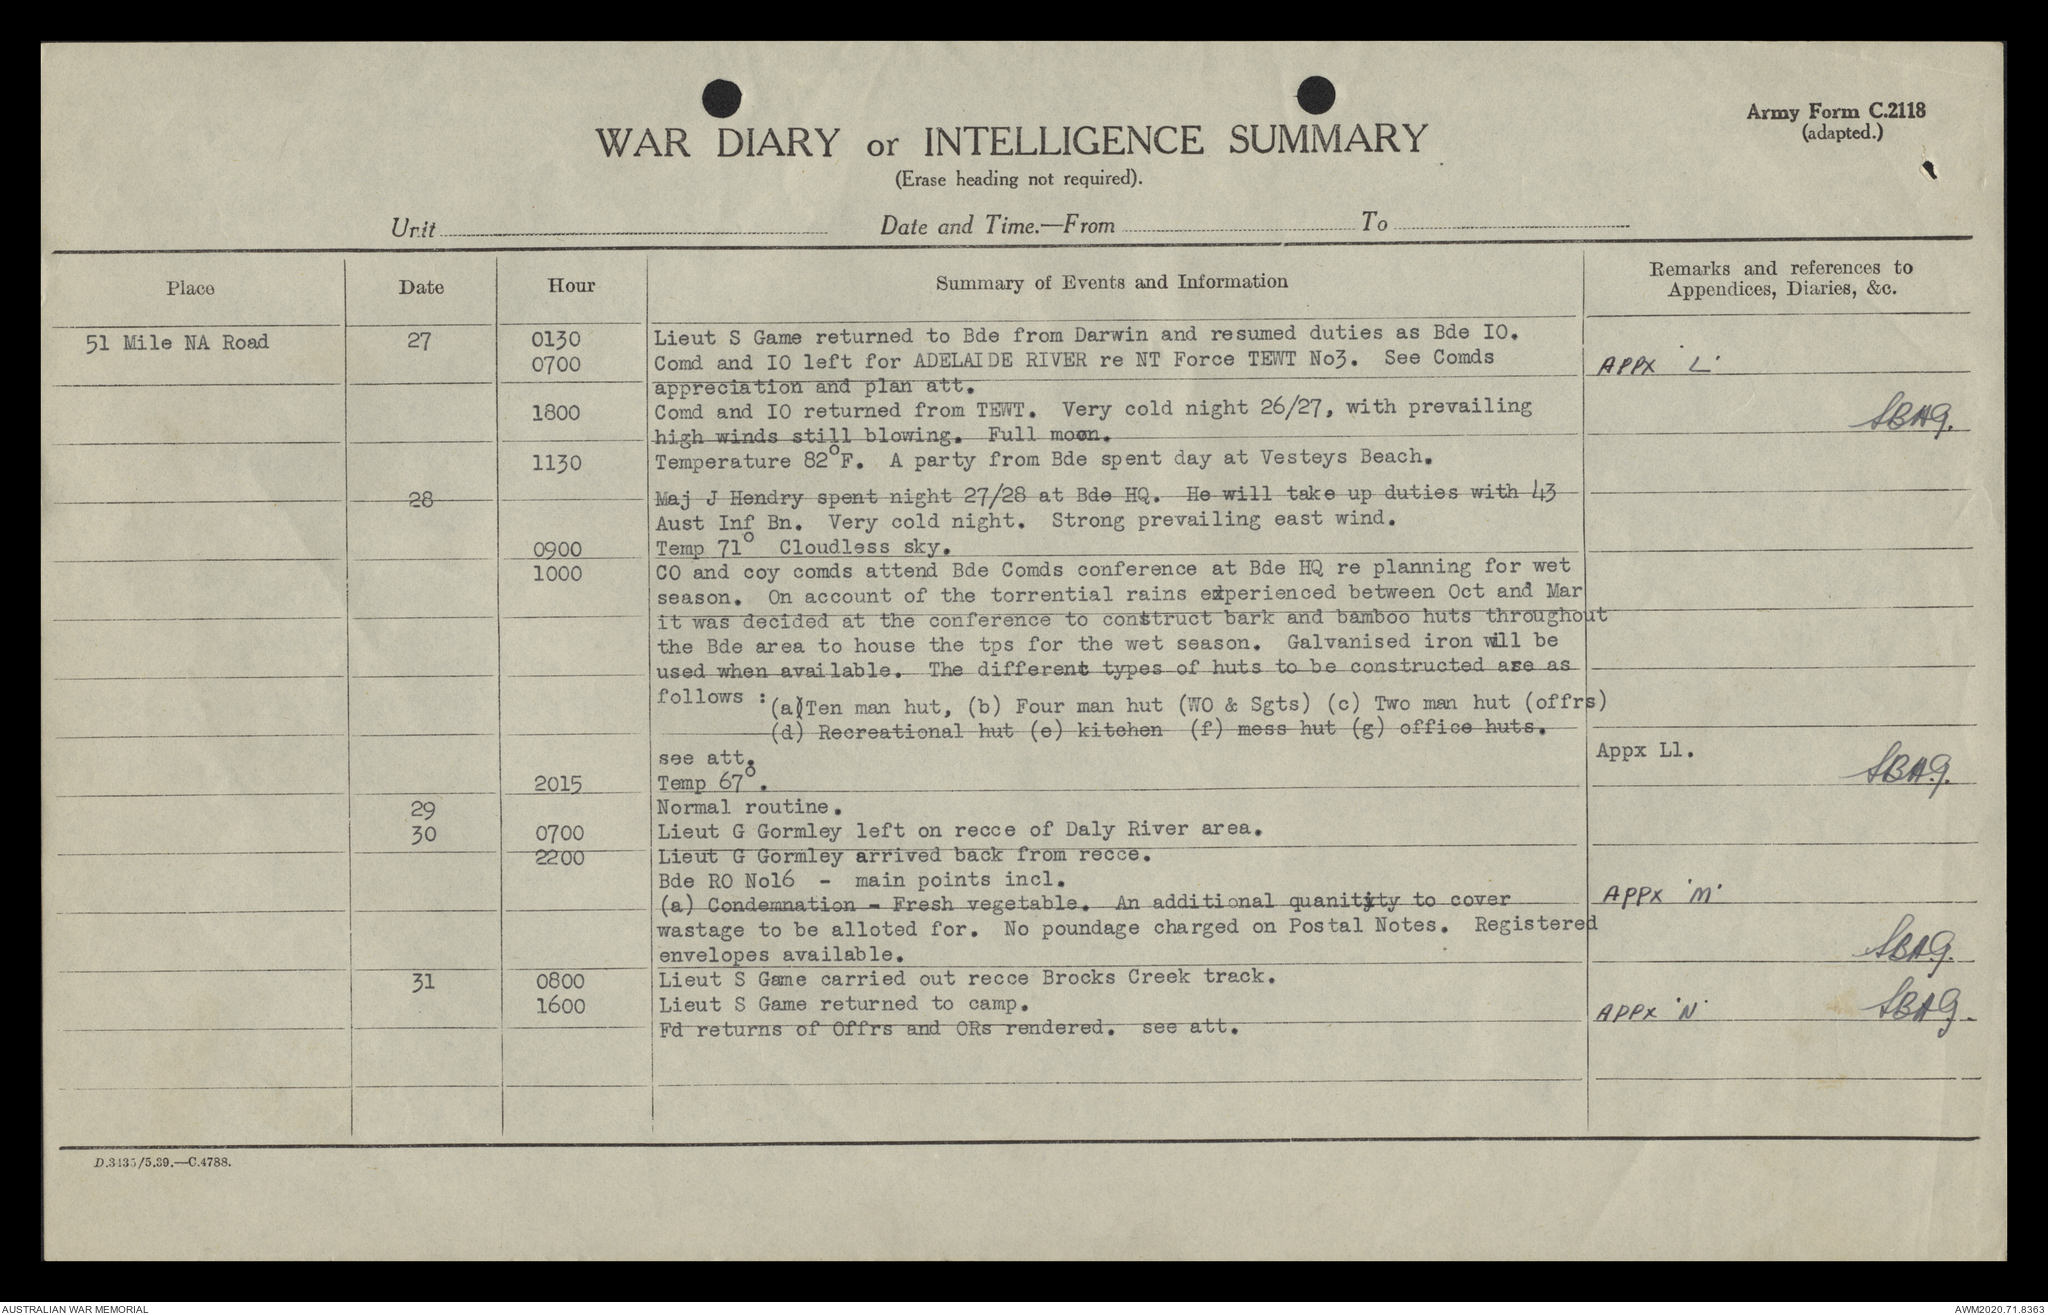 Army Form C.2118
(adapted.)
WAR DIARY or INTELLIGENCE SUMMARY
(Erase heading not required).
Unit Date and Time.—From To
Place Date Hour Summary of Events and Information Remarks and references to
Appendices, Diaries, &c.
51 Mile NA Road 27 0130 Lieut S Game returned to Bde from Darwin and resumed duties as Bde IO.
0700 Comd and IO left for ADELAIDE RIVER re NT Force TEWT No3. See Comds APPX 'L'
appreciation and plan att.
1800 Comd and IO returned from TEWT. Very cold night 26/27, with prevailing SBAG.
high winds still blowing. Full moon.
1130 Temperature 82°F. A party from Bde spent day at Vesteys Beach.
28 Maj J Hendry spent night 27/28 at Bde HQ. He will take up duties with 43
Aust Inf Bn. Very cold night. Strong prevailing east wind.
0900 Temp 71° Cloudless sky.
1000 CO and coy comds attend Bde Comds conference at Bde HQ re planning for wet
season. On account of the torrential rains experienced between Oct and Mar
it was decided at the conference to construct bark and bamboo huts throughout
the Bde area to house the tps for the wet season. Galvanised iron will be
used when available. The different types of huts to be constructed are as
follows : (a) Ten man hut, (b) Four man hut (WO & Sgts) (c) Two man hut (offrs)
(d) Recreational hut (e) kitchen (f) mess hut (g) office huts.
see att. Appx L1.
2015 Temp 67°. SBAG.
29 Normal routine.
30 0700 Lieut G Gormley left on recce of Daly River area.
2200 Lieut G Gormley arrived back from recce.
Bde RO No16 - main points incl. APPX 'M'
(a) Condemnation - Fresh vegetable. An additional quanitity to cover
wastage to be alloted for. No poundage charged on Postal Notes. Registered
envelopes available. SBAG.
31 0800 Lieut S Game carried out recce Brocks Creek track.
1600 Lieut S Game returned to camp. APPX 'N' SBAG.
Fd returns of Offrs and ORs rendered. see att.
D.3435/5.39.—C.4788.
AUSTRALIAN WAR MEMORIAL AWM2020.71.8363